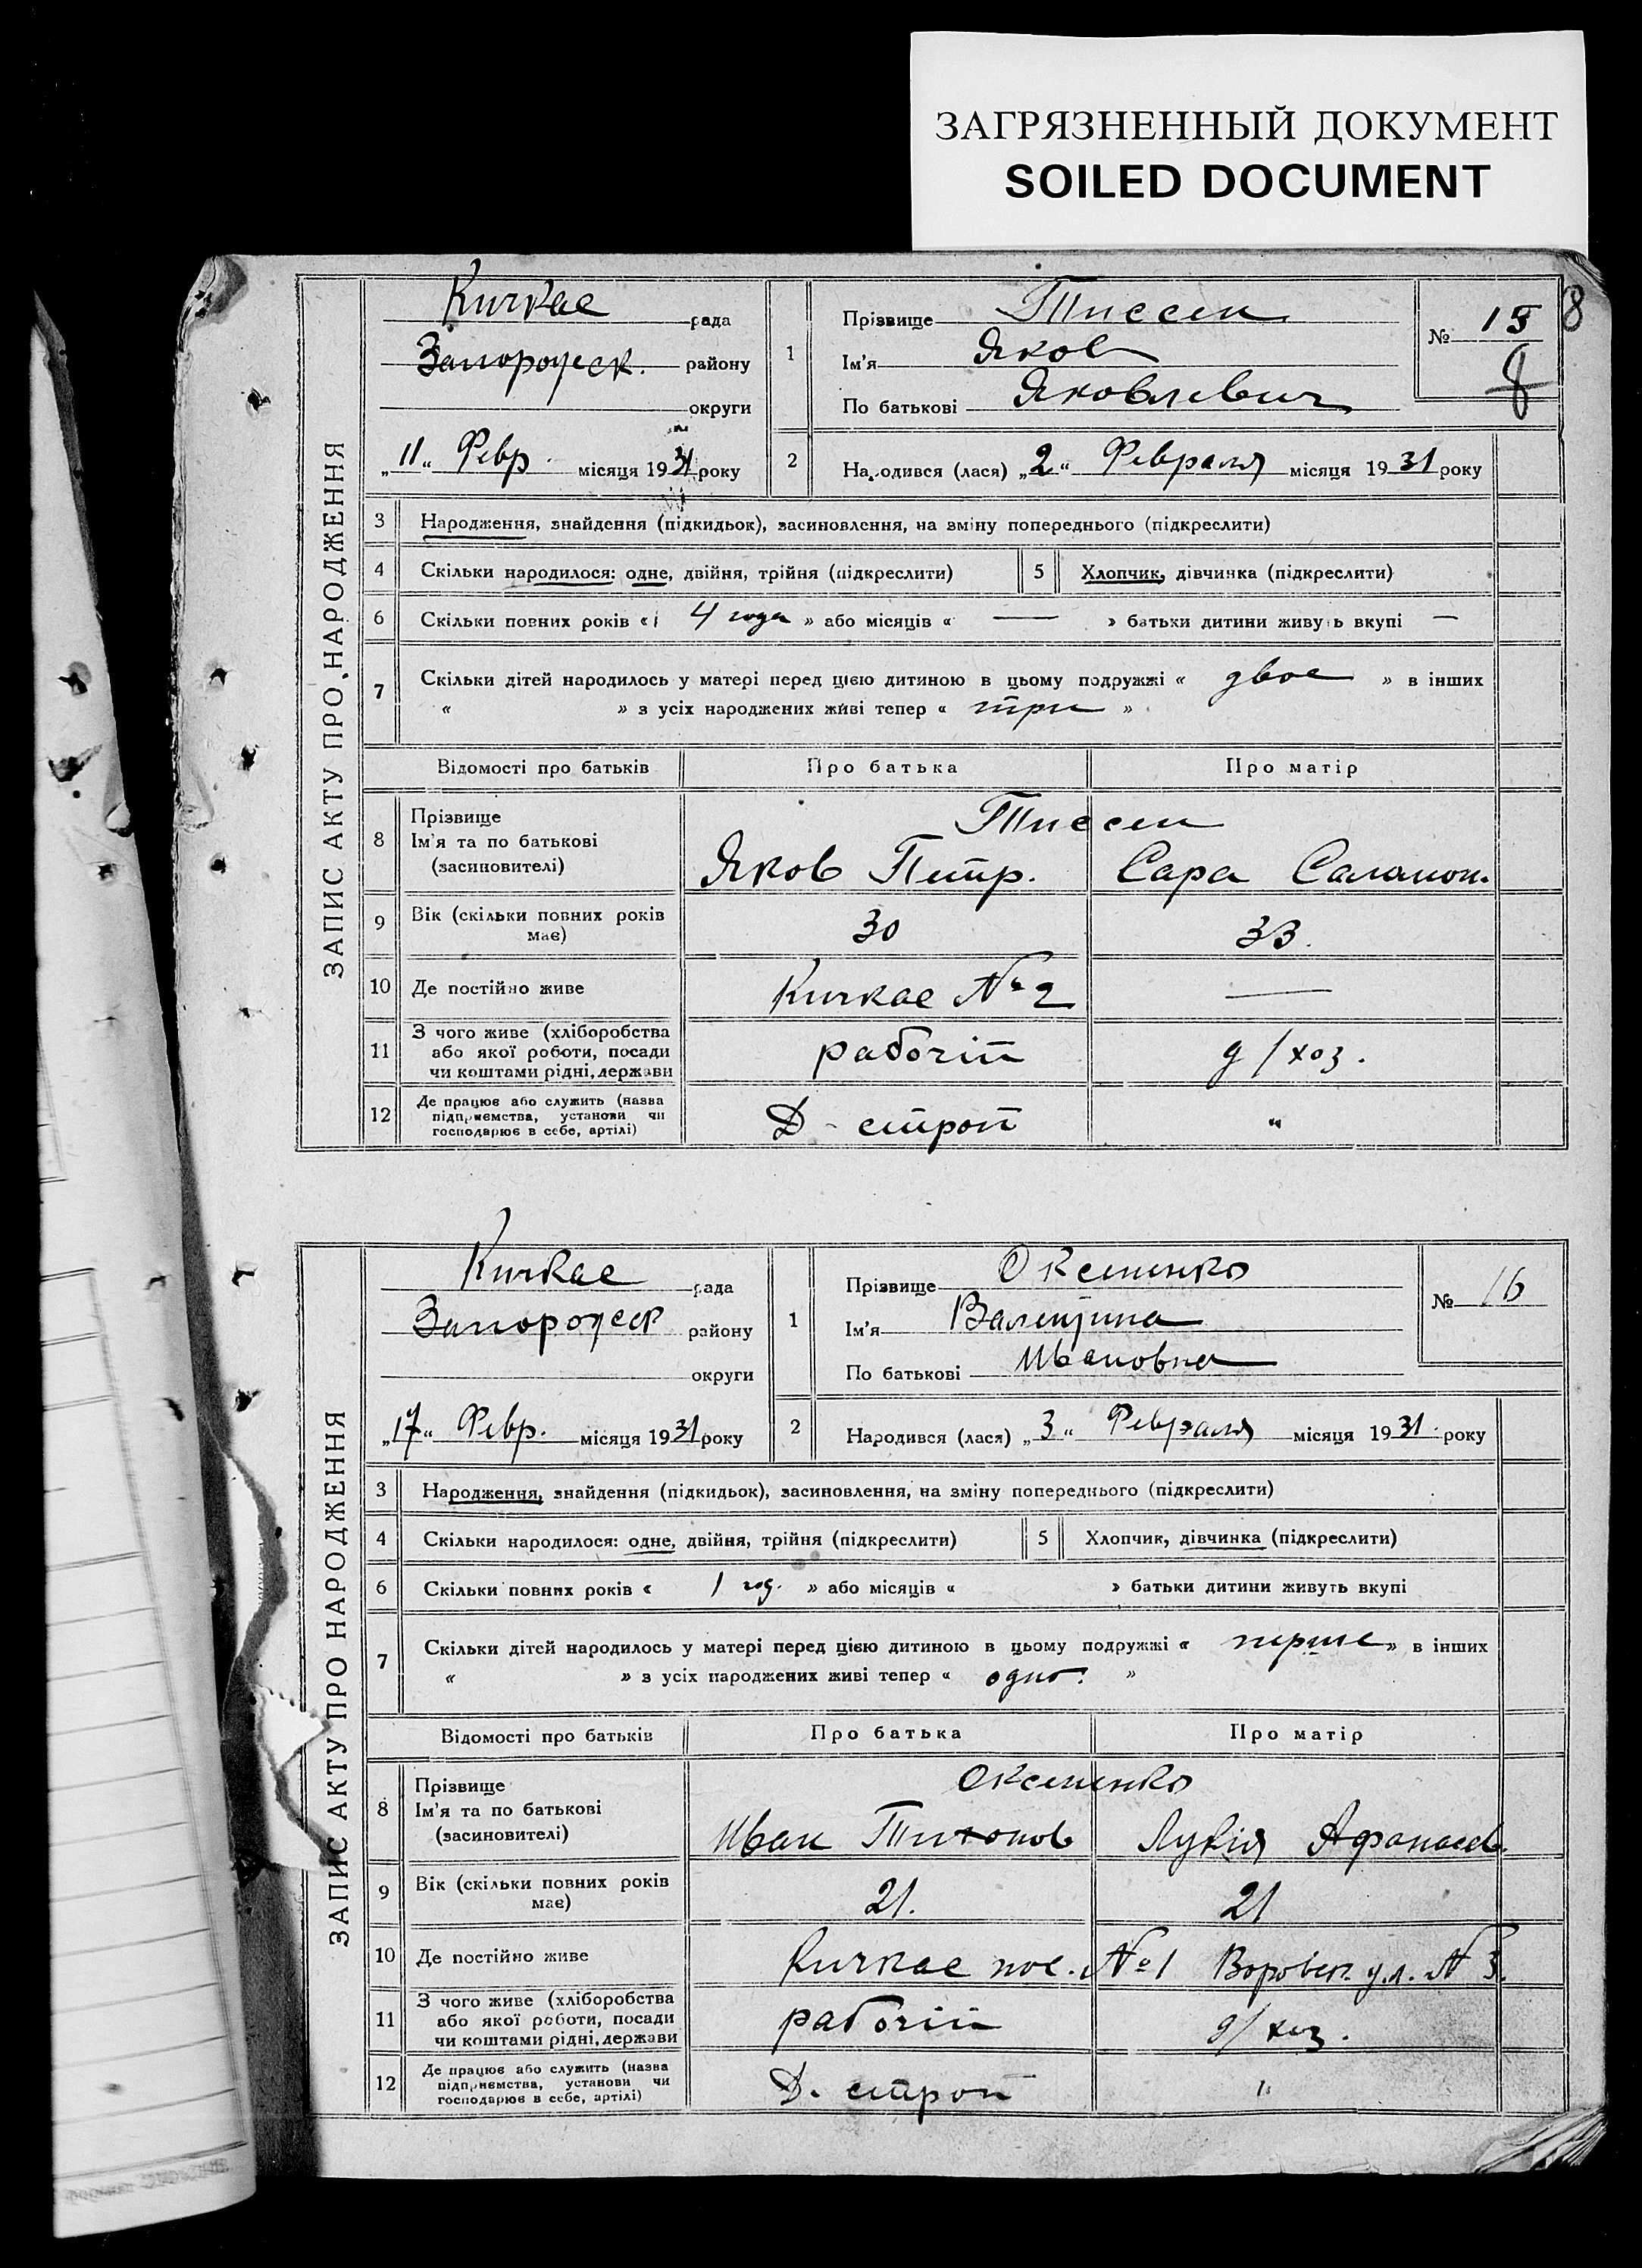 ЗАГРЯЗНЕННЫЙ ДОКУМЕНТ
SOILED DOCUMENT
8
ЗАПИС АКТУ ПРО НАРОДЖЕННЯ
Кичкас рада
Запорожск. району
округи
„11“ Февр. місяця 1931 року
1 Прізвище Тиссен
Ім'я Яков
По батькові Яковлевич
№ 15
8
2 Народився (лася) „2“ Февраля місяця 1931 року
3 Народження, знайдення (підкидьок), засиновлення, на зміну попереднього (підкреслити)
4 Скільки народилося: одне, двійня, трійня (підкреслити) 5 Хлопчик, дівчинка (підкреслити)
6 Скільки повних років « 4 года » або місяців « — » батьки дитини живуть вкупі —
7 Скільки дітей народилось у матері перед цією дитиною в цьому подружжі « двое » в інших
« » з усіх народжених живі тепер « три »
Відомості про батьків Про батька Про матір
8 Прізвище
Ім'я та по батькові
(засиновителі)
Тиссен
Яков Петр. Сара Саламон.
9 Вік (скільки повних років
має)
30 33.
10 Де постійно живе Кичкас № 2 —
11 З чого живе (хліборобства
або якої роботи, посади
чи коштами рідні, держави
рабочій д/хоз.
12 Де працює або служить (назва
підприємства, установи чи
господарює в себе, артілі)
Д-строй "
ЗАПИС АКТУ ПРО НАРОДЖЕННЯ
Кичкас рада
Запорожск району
округи
„17“ Февр. місяця 1931 року
1 Прізвище Оксененко
Ім'я Валентина
По батькові Ивановна
№ 16
2 Народився (лася) „3“ Февраля місяця 1931. року
3 Народження, знайдення (підкидьок), засиновлення, на зміну попереднього (підкреслити)
4 Скільки народилося: одне, двійня, трійня (підкреслити) 5 Хлопчик, дівчинка (підкреслити)
6 Скільки повних років « 1 год. » або місяців « » батьки дитини живуть вкупі
7 Скільки дітей народилось у матері перед цією дитиною в цьому подружжі « перше » в інших
« » з усіх народжених живі тепер « одно. »
Відомості про батьків Про батька Про матір
8 Прізвище
Ім'я та по батькові
(засиновителі)
Оксененко
Иван Тихонов Лукія Афанасьев.
9 Вік (скільки повних років
має)
21. 21
10 Де постійно живе Кичкас пос. №1 Воровск. ул. № 3.
11 З чого живе (хліборобства
або якої роботи, посади
чи коштами рідні, держави
рабочій д/хоз.
12 Де працює або служить (назва
підприємства, установи чи
господарює в себе, артілі)
Д. строй "